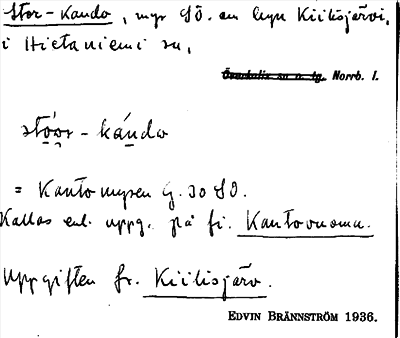 Stor-Kando, myr SÖ. om byn Kiilisjärvi,
i Hietaniemi sn,
Överkalix sn o. tg. Norrb. l.
stǫ́ǫr - kándo
= Kantomyren G. 30 SO.
Kallas enl. uppg. på fi. Kantovuoma.
Uppgiften fr. Kiilisjärv.
EDVIN BRÄNNSTRÖM 1936.